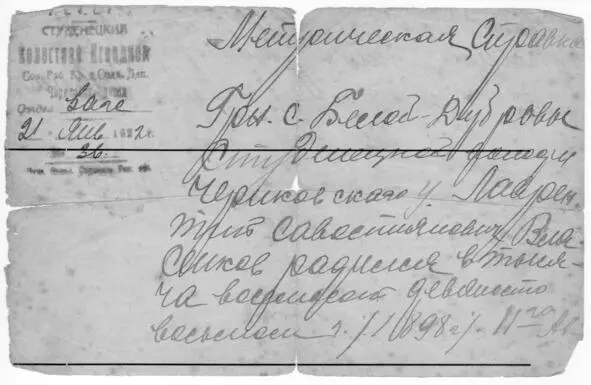 СТУДЕНЕЦКИЙ
Волостной Исполком
Сов. Раб. Кр. и Солд. Деп.
Отдел Загс
21 Янв 1922 г.
№ 36.
Метрическая Справка
Грн. с. Белой-Дубровы
Студенецкой волости
Чериковского у. Лаврен
тит Савостиянович Вла
сенков радился в тыся-
ча восемьсот девяносто
восьмом г. /1898 г/. 11го Ав